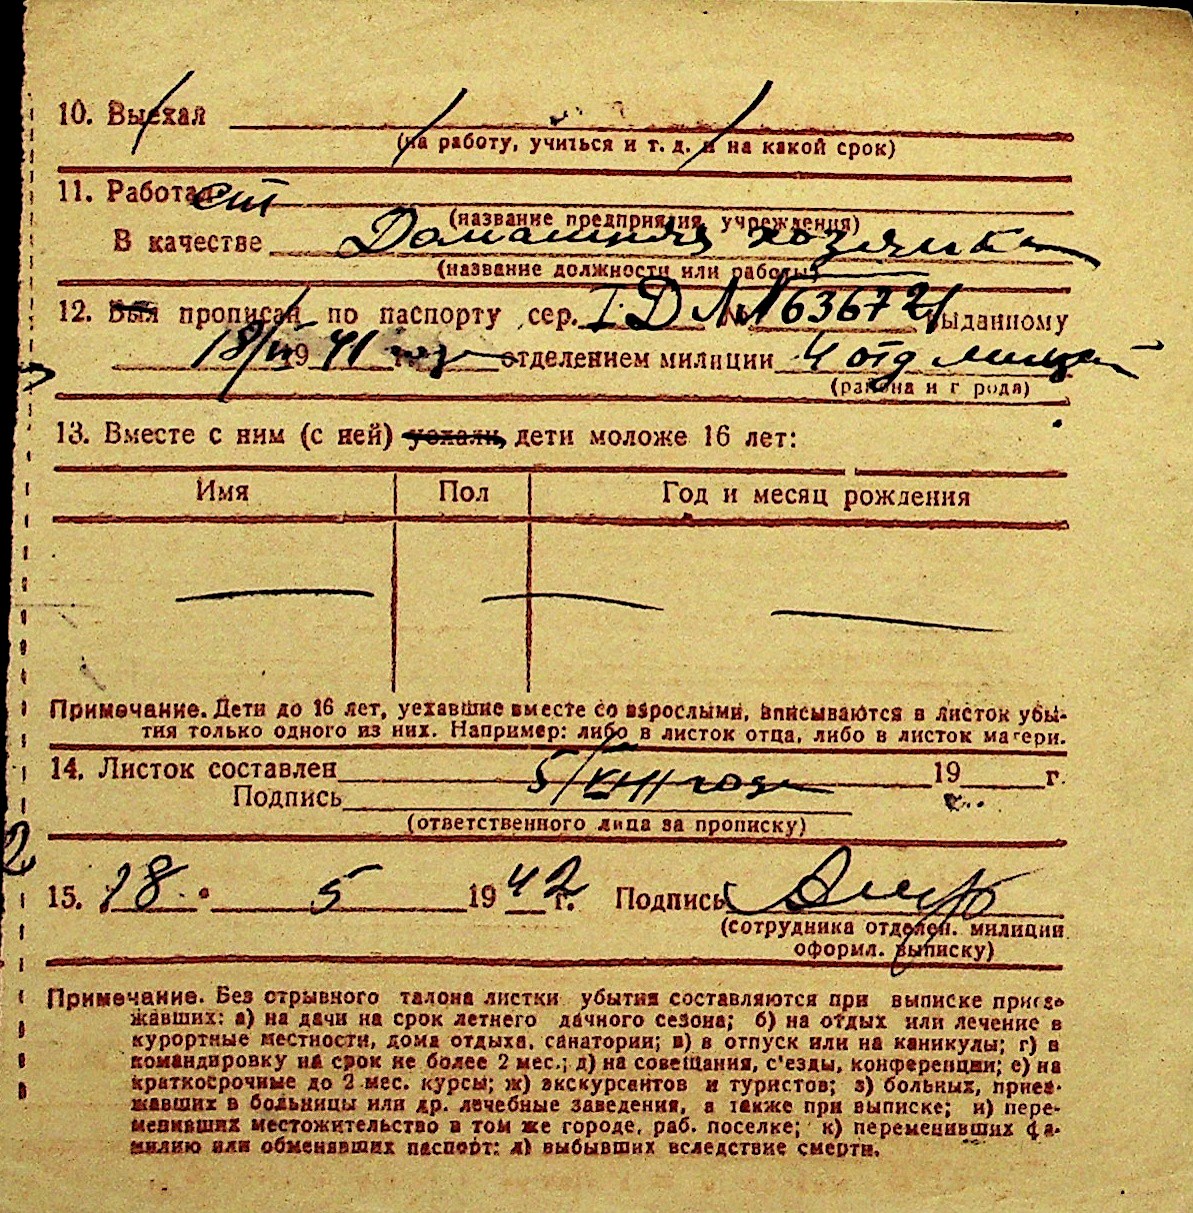 10. Выехал
(на работу, учиться и т. д. и на какой срок)
11. Работал
(название предприятия, учреждения)
В качестве Домашняя хозяйка
(название должности или работы)
12. Был прописан по паспорту сер. I ДЛ № 636721 выданному
18/ 1941 отделением милиции 4 отд
(района и города)
13. Вместе с ним (с ней) уехали, дети моложе 16 лет:
Имя Пол Год и месяц рождения
Примечание. Дети до 16 лет, уехавшие вместе со взрослыми, вписываются в листок убы-
тия только одного из них. Например: либо в листок отца, либо в листок матери.
14. Листок составлен 5/VIII года 19 г.
Подпись
(ответственного лица за прописку)
15. 18. 5 1942 г. Подпись
(сотрудника отделен. милиции
оформл. выписку)
Примечание. Без отрывного талона листки убытия составляются при выписке приез-
жавших: а) на дачи на срок летнего дачного сезона; б) на отдых или лечение в
курортные местности, дома отдыха, санатории; в) в отпуск или на каникулы; г) в
командировку на срок не более 2 мес.; д) на совещания, с'езды, конференции; е) на
краткосрочные до 2 мес. курсы; ж) экскурсантов и туристов; з) больных, приез-
жавших в больницы или др. лечебные заведения, а также при выписке; и) пере-
менивших местожительство в том же городе, раб. поселке; к) переменивших фа-
милию или обменявших паспорт; л) выбывших вследствие смерти.